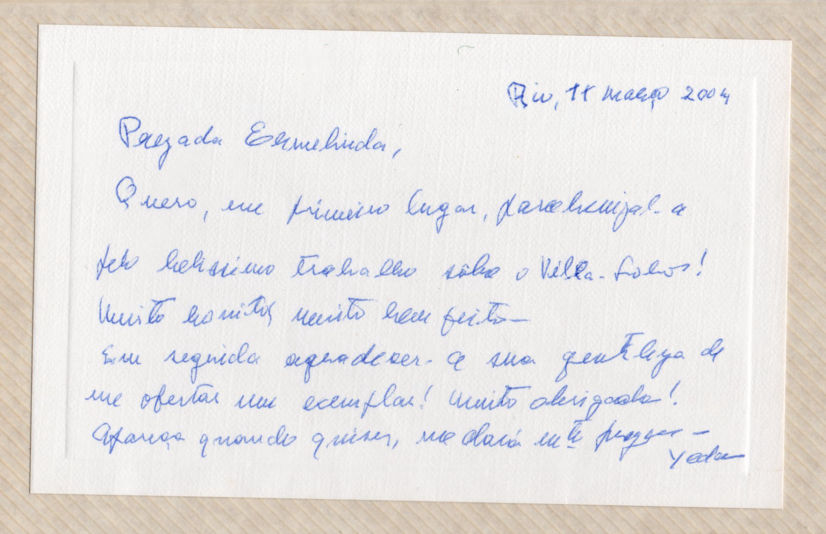 Rio, 11 março 2004
Prezada Ermelinda,
Quero, em primeiro lugar, parabenizal-a
pelo belissimo trabalho sobre o Villa-Lobos!
Muito bonito, muito bem feito —
Em seguida agradecer-a sua gentileza de
me ofertar um exemplar! Muito obrigada!
Apareça quando quiser, me dará mto prazer —
Yeda